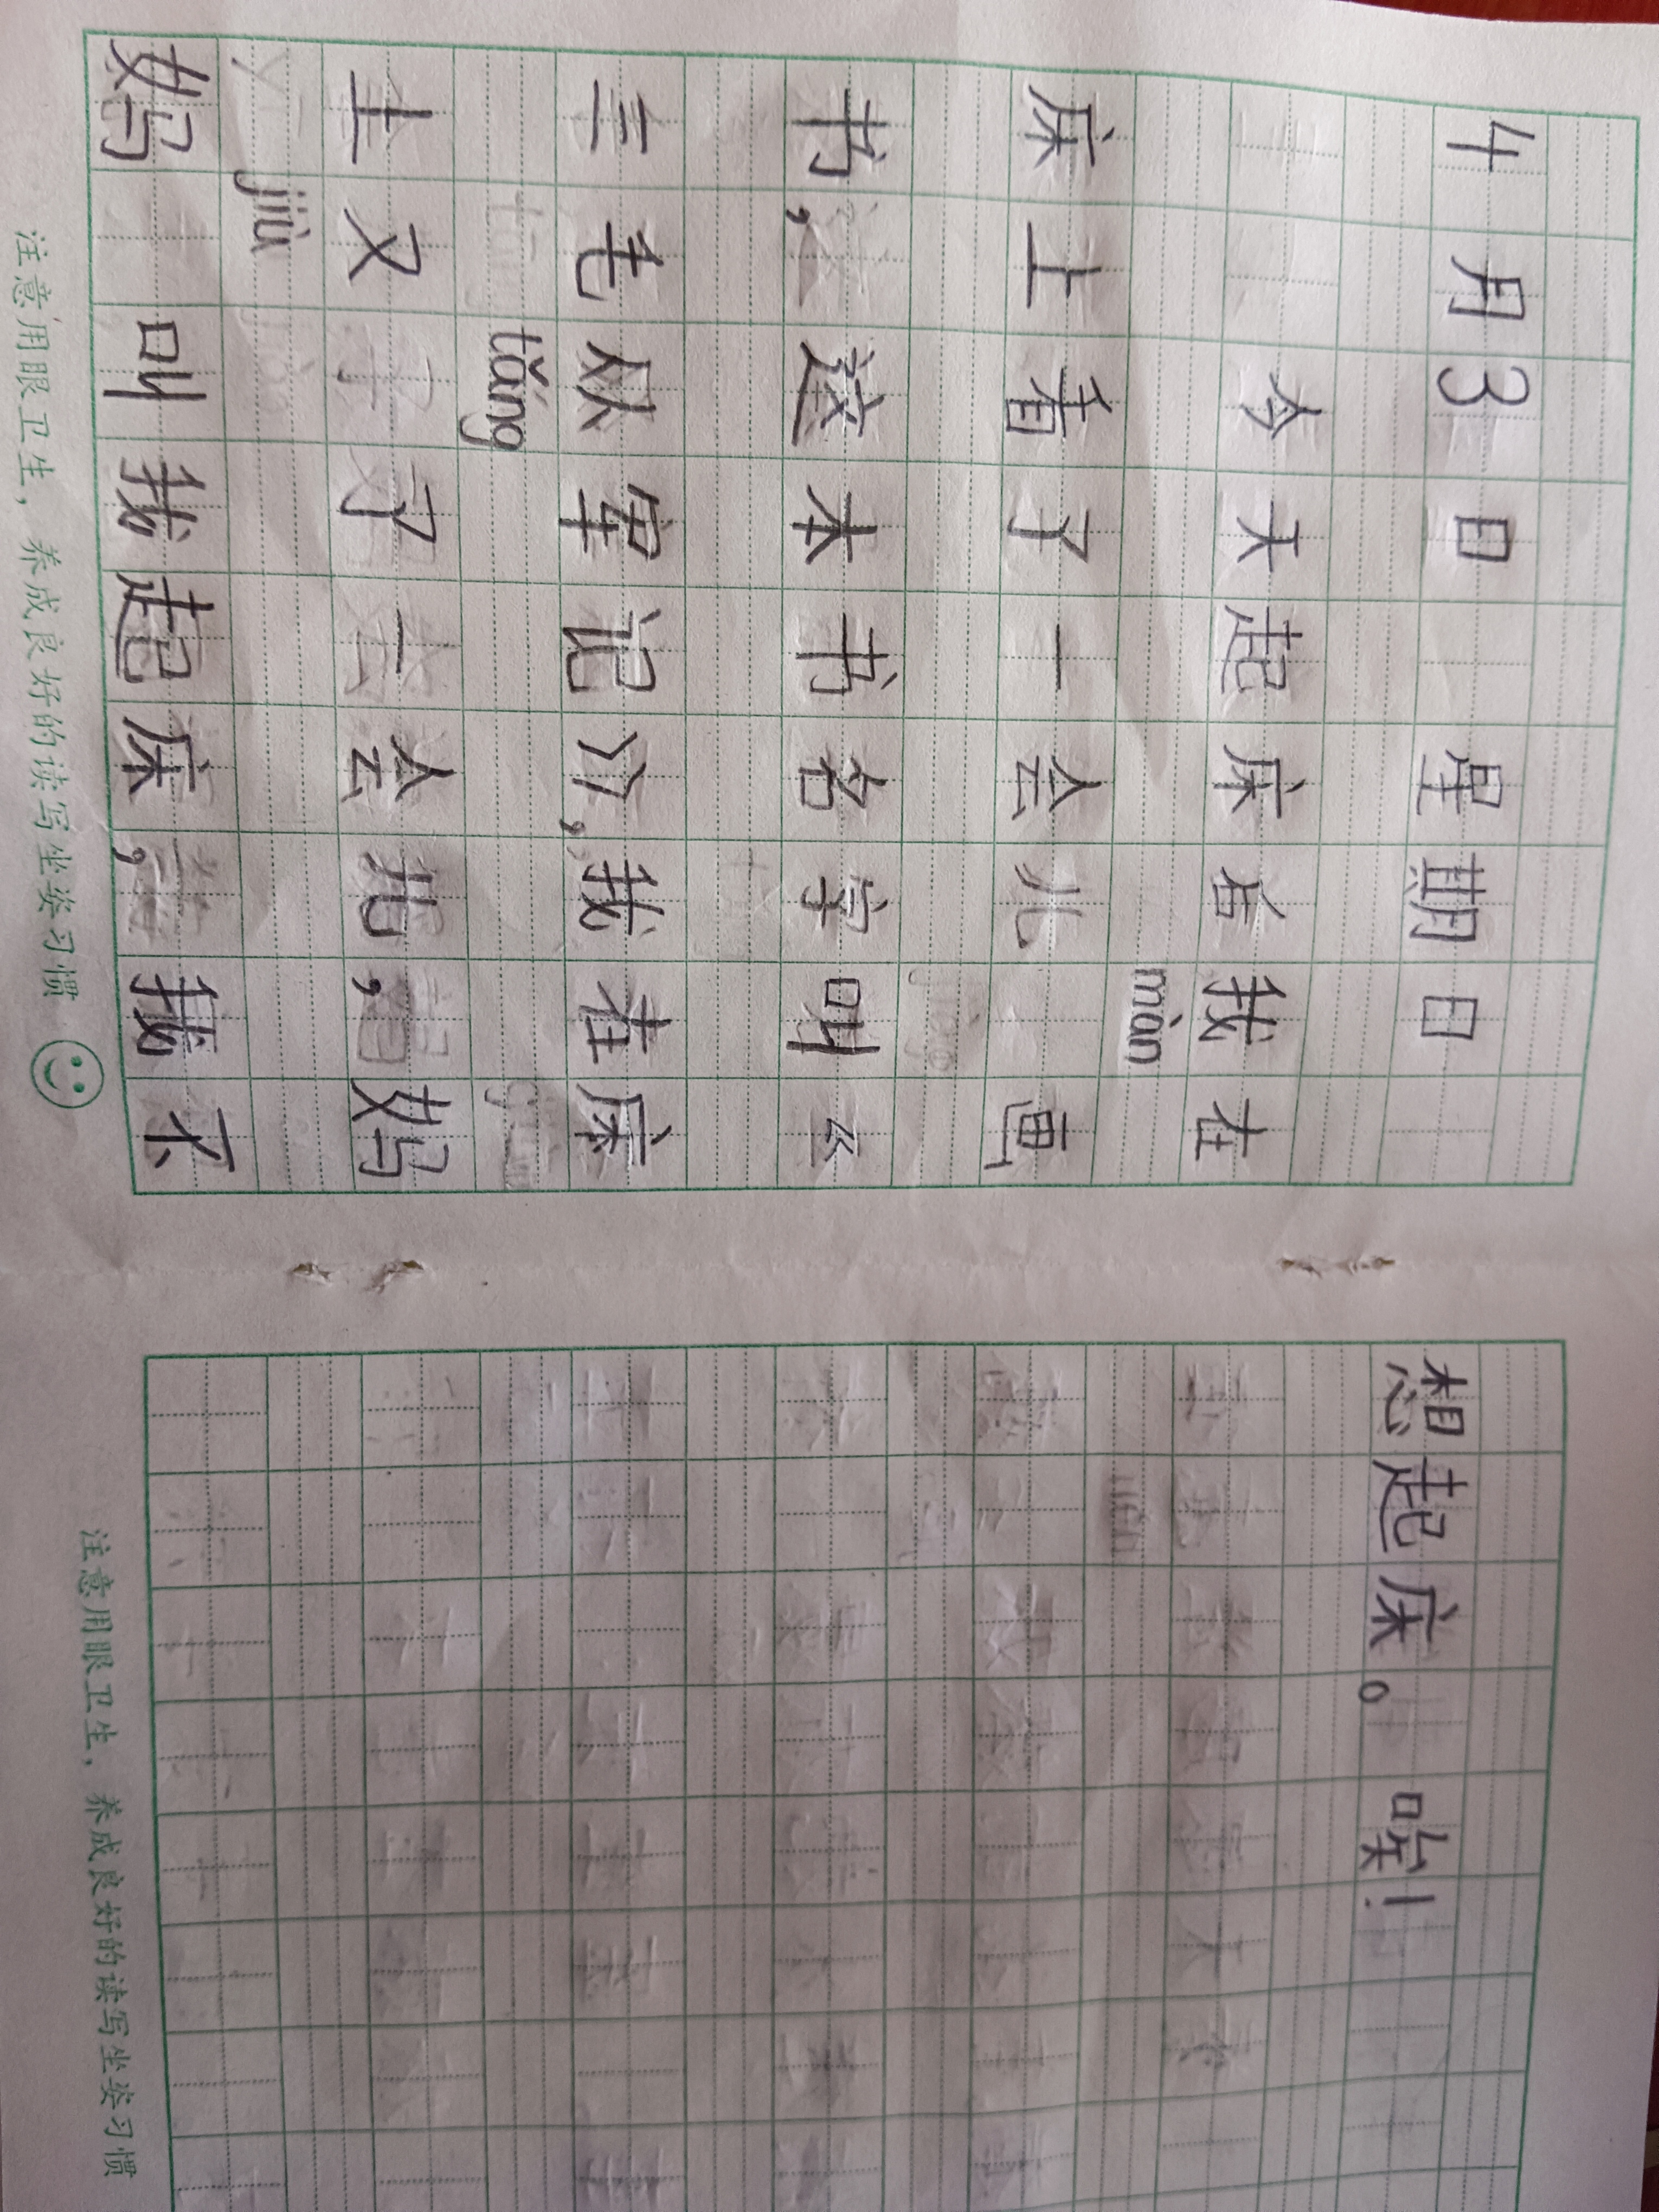 4月3日 星期日
今天起床后我在
màn
床上看了一会儿 画
书,这本书名字叫《
三毛从军记》,我在床
tǎng
上又 了一会儿,妈
jiù
妈 叫我起床,我不
注意用眼卫生,养成良好的读写坐姿习惯
想起床。唉!
注意用眼卫生,养成良好的读写坐姿习惯